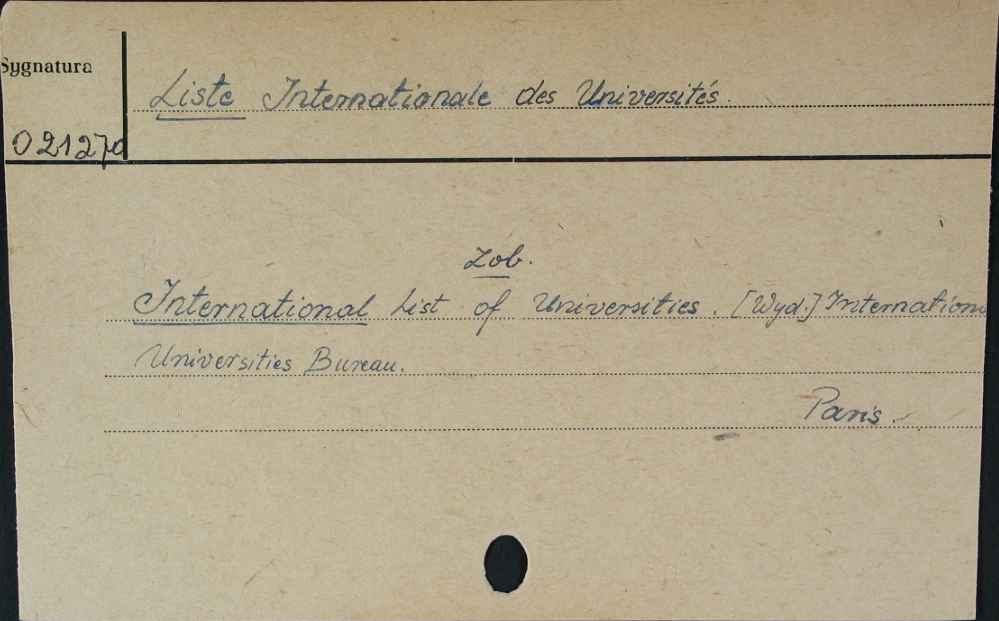 Sygnatura
Liste Internationale des Universités.
O 21270
Zob.
International List of Universities. [Wyd.] Internation
Universities Bureau.
Paris.